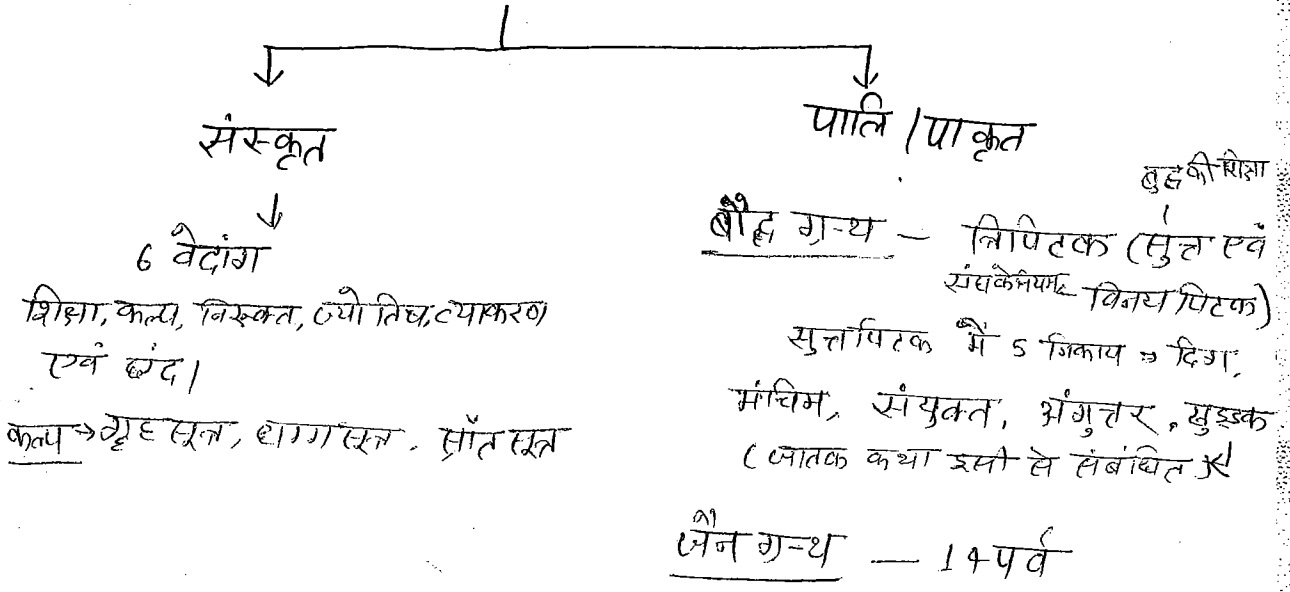 संस्कृत
6 वेदांग
शिक्षा, कल्प, निरूक्त, ज्योतिष, व्याकरण
एवं छंद।
कल्प → गृह सूत्र, धाग्ग सूत्र, स्रौत सूत्र
पालि / पाकृत
बुद्ध की शिक्षा
बौद्ध ग्रन्थ – त्रिपिटक (सुत्त एवं
संघ के नियम विनय पिटक)
सुत्तपिटक में 5 निकाय ⇒ दिग,
मंझिम, संयुक्त, अंगुत्तर, खुड्डक
(जातक कथा इसी से संबंधित
जैन ग्रन्थ — 14 पर्व